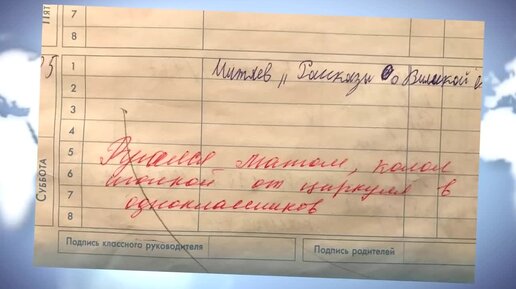 7
8
1 Митяев „ Рассказы о Великой
2
3
4
СУББОТА
5 Ругался матом, колол
6 иголкой от циркуля в
7 одноклассников
8
Подпись классного руководителя
Подпись родителей